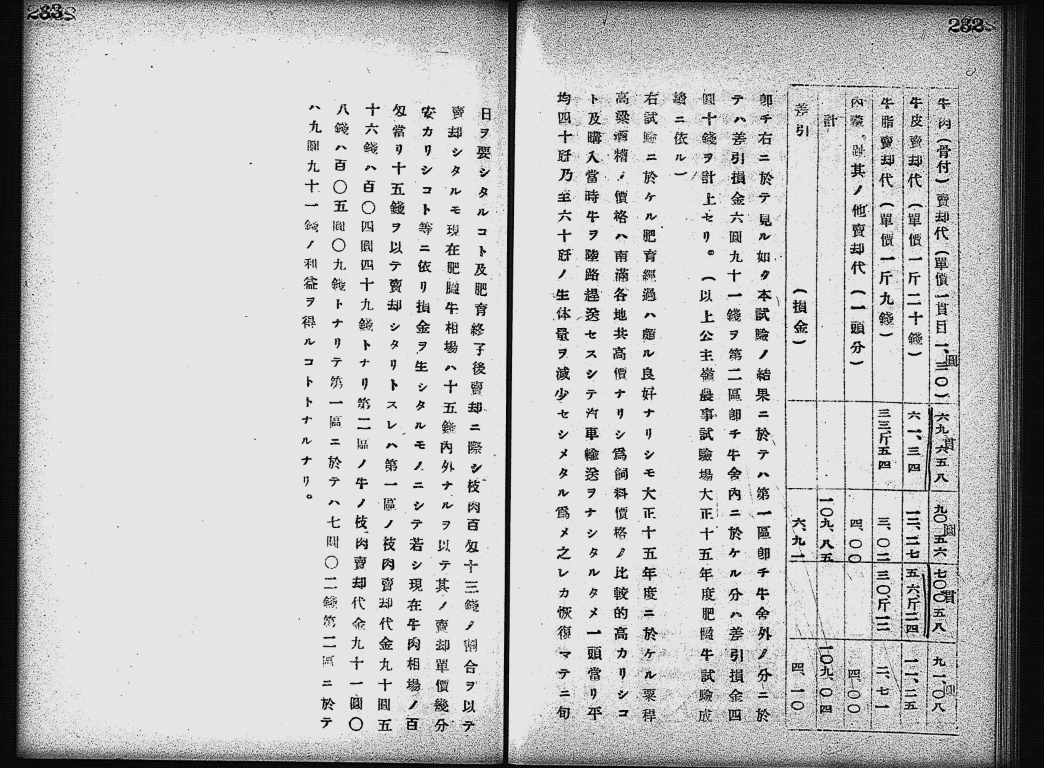 牛肉(骨付)賣却代(單價一貫目一、三〇) 六九、六五八 九〇、五六 七〇〇五八 九一、〇八
牛皮賣却代(單價一斤二十錢) 六一、三四 一二、二七 五六斤二四 一一、二五
牛脂賣却代(單價一斤九錢) 三三斤五四 三、〇二 三〇斤一二 二、七一
內臟、蹄其ノ他賣却代(一頭分) 四、〇〇 四、〇〇
計 一〇九、八五 一〇九、〇四
差引 (損金) 六、九一 四、一〇
卽チ右ニ於テ見ル如ク本試驗ノ結果ニ於テハ第一區卽チ牛舍外ノ分ニ於
テハ差引損金六圓九十一錢ヲ第二區卽チ牛舍內ニ於ケル分ハ差引損金四
圓十錢ヲ計上セリ。(以上公主嶺農事試驗場大正十五年度肥育牛試驗成
績ニ依ル)
右試驗ニ於ケル肥育經過ハ頗ル良好ナリシモ大正十五年度ニ於ケル粟稈
高粱酒糟ノ價格ハ南滿各地共高價ナリシ爲飼料價格ノ比較的高カリシコ
ト及購入當時牛ヲ陸路趕送セスシテ汽車輸送ヲナシタルタメ一頭當リ平
均四十斤乃至六十斤ノ生体量ヲ減少セシメタル爲メ之レカ恢復マテニ旬
日ヲ要シタルコト及肥育終了後賣却ニ際シ枝肉百匁十三錢ノ割合ヲ以テ
賣却シタルモ現在肥育牛相場ハ十五錢內外ナルヲ以テ其ノ賣却單價幾分
安カリシコト等ニ依リ損金ヲ生シタルモノニシテ若シ現在牛肉相場ノ百
匁當リ十五錢ヲ以テ賣却シタリトスレハ第一區ノ枝肉賣却代金九十圓五
十六錢ハ百〇四圓四十九錢トナリ第二區ノ牛ノ枝肉賣却代金九十一圓〇
八錢ハ百〇五圓〇九錢トナリテ第一區ニ於テハ七圓〇二錢第二區ニ於テ
ハ九圓九十一錢ノ利益ヲ得ルコトトナルナリ。